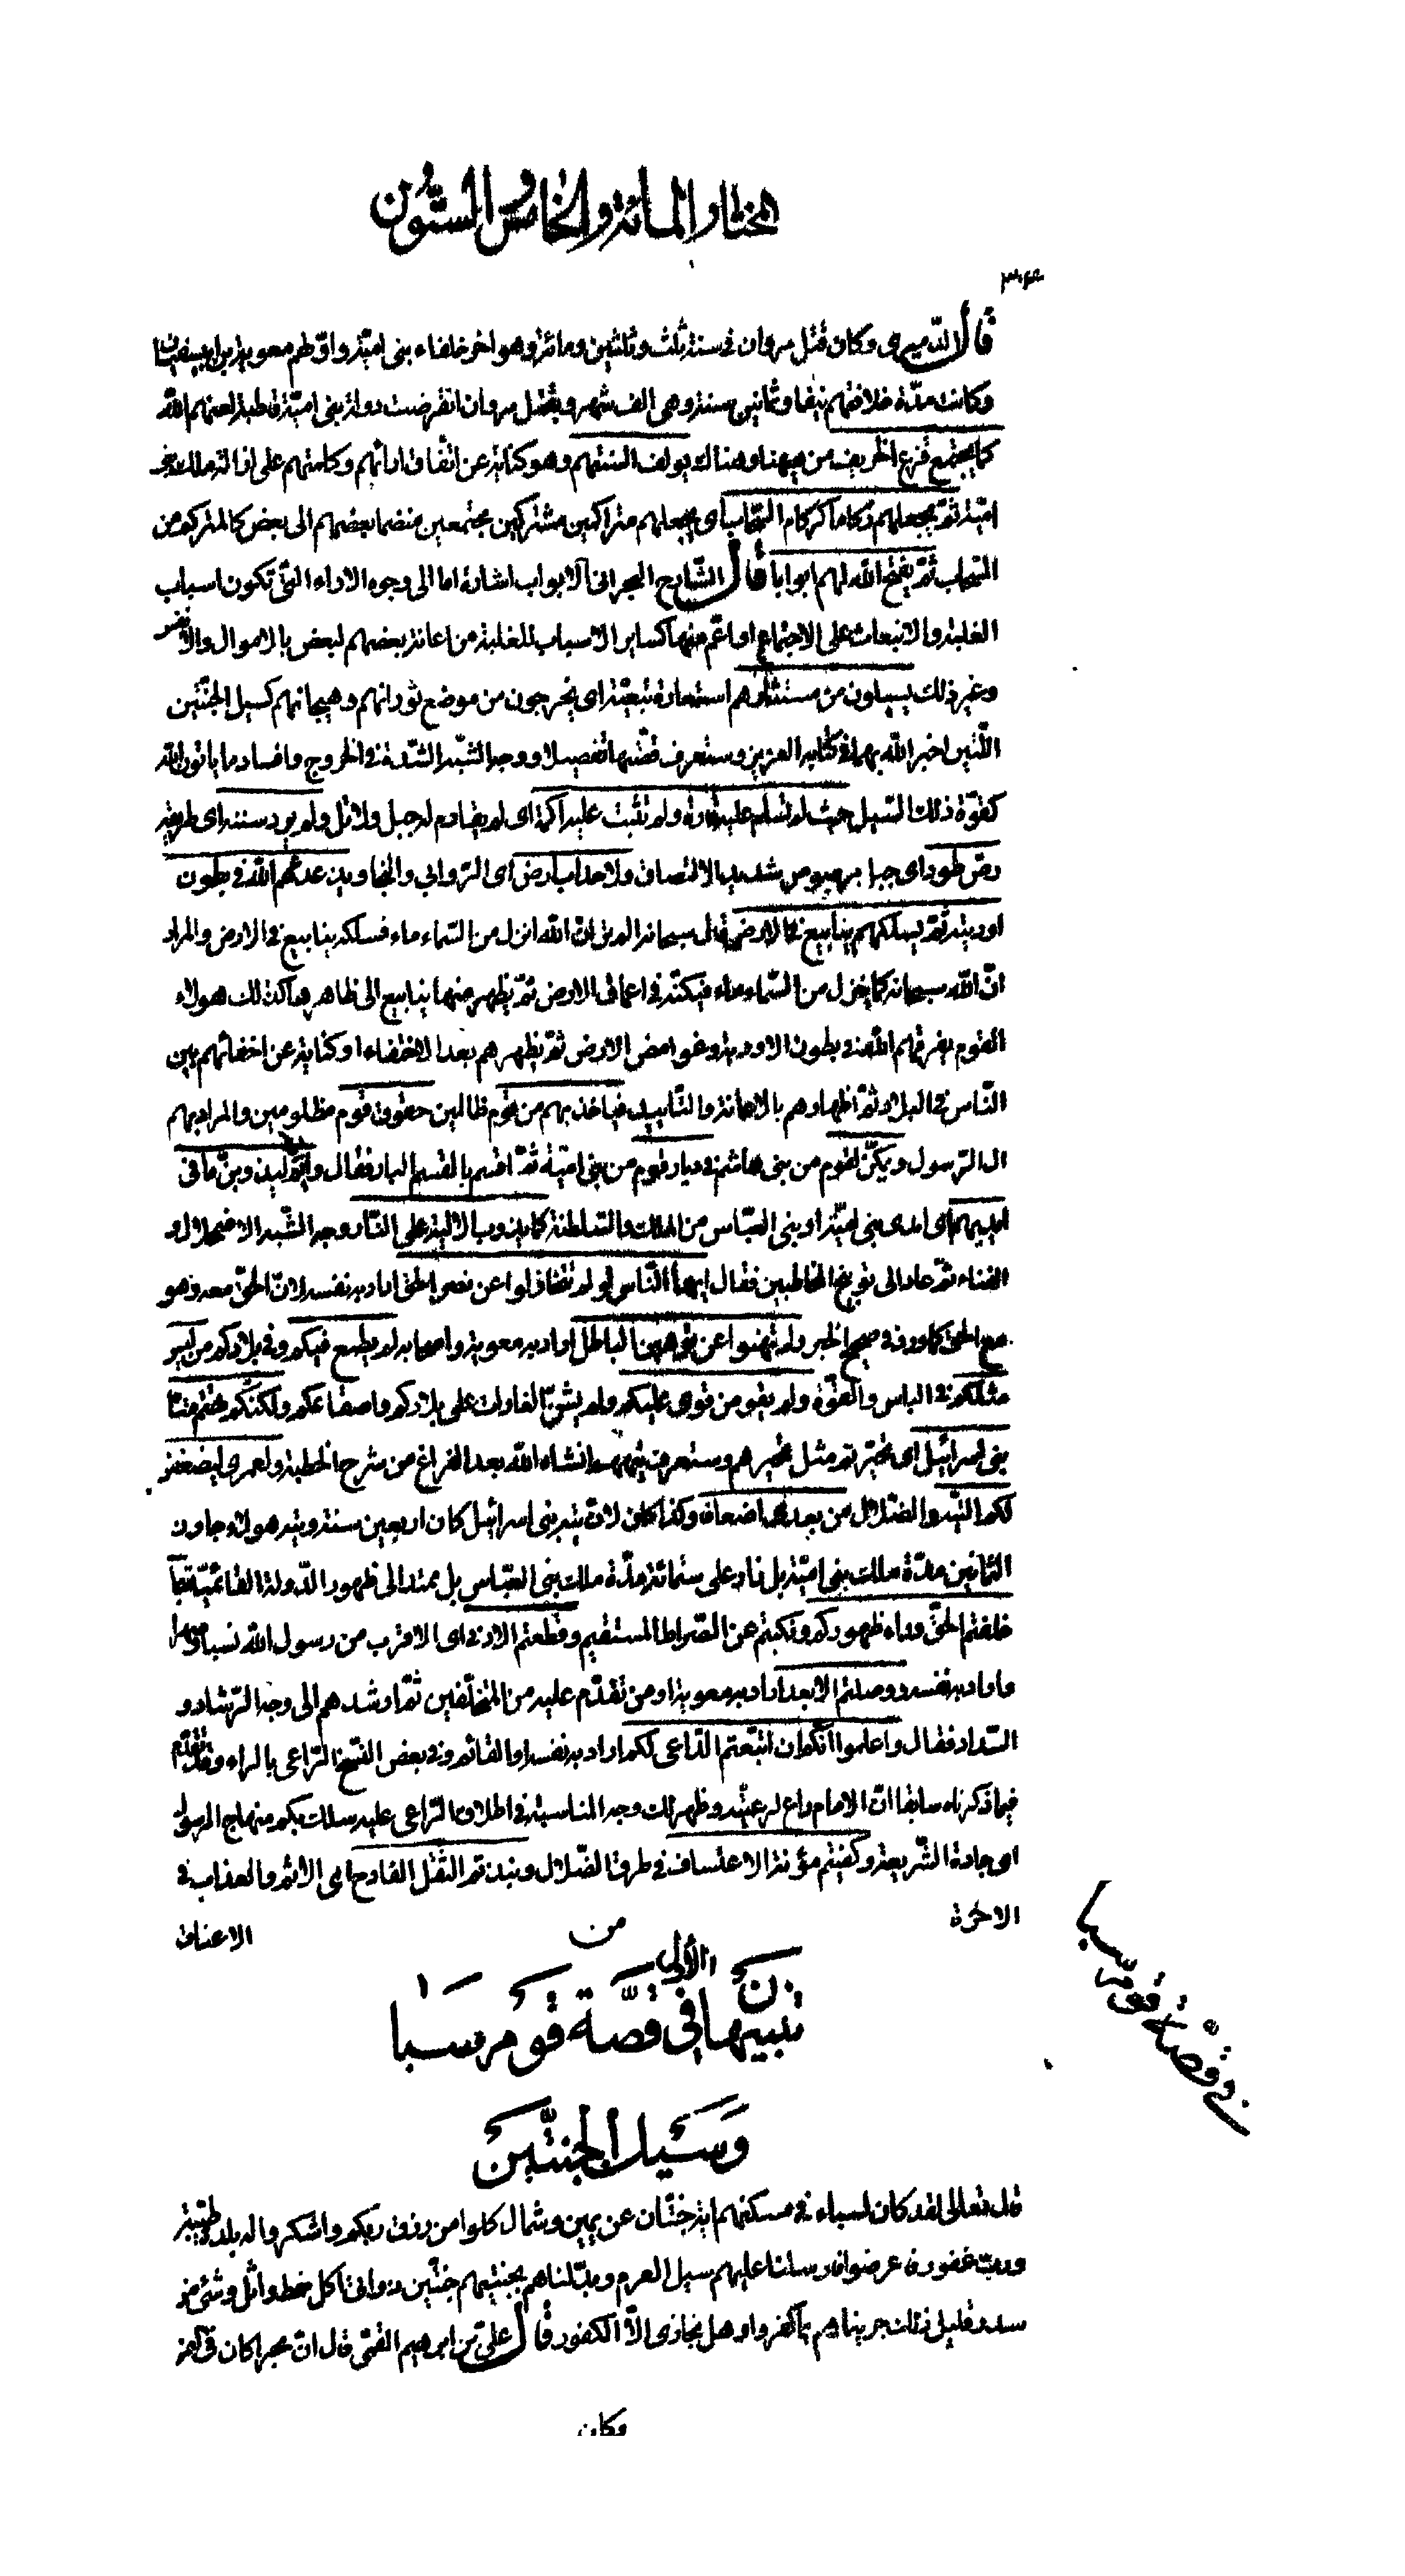 المختار المائة والخامس والستون
٣٠۴
قال الدميرى وكان قتل مروان فى سنة ثلث وثلثين ومائة وهو اخر خلفاء بنى امية واولهم معوية بن ابيسفيان
وكانت مدة خلافتهم نيفا وثمانين سنة وهى الف شهر وبقتل مروان انقرضت دولة بنى امية قاطبة لعنهم الله
كما يجتمع قزع الخريف من هيهنا وهنا لك يولف السنتهم وهو كناية عن اتفاق ارائهم وكلمتهم على ازالة ملك بنى
امية ثم يجعلهم ركاما كركام السحاب اى يجعلهم متراكمين مشتركين مجتمعين منضما بعضهم الى بعض كالمتراكم من
السحاب ثم يفتح الله لهم ابوابا قال الشارح البحرانى الابواب اشارة اما الى وجوه الاراء التى تكون اسباب
الغلبة والانبعاث على الاجتماع او اعم منها كساير الاسباب للغلبة من اعانة بعضهم لبعض بالاموال والانفس
وغير ذلك يسيلون من مستثارهم استعارة تبعية اى يخرجون من موضع ثورانهم وهيجانهم كسيل الجنتين
اللتين اخبر الله بهما فى كتابه العزيز وستعرف قصتها تفصيلا ووجه الشبه الشدة فى الخروج وافساد ما ياتون اليه
كقوة ذلك السيل حيث لم تسلم عليه قارة ولم تثبت عليه اكمة اى لم يقاوم له جبل ولا تل ولم يرد سننه اى طريقه
رص طود اى جبل مرصوص شديد الالتصاق ولا حداب ارض اى الروابى والنجاد يذعذعهم الله فى بطون
اوديته ثم يسلكهم ينابيع فى الارض قال سبحانه الم تر ان الله انزل من السماء ماء فسلكه ينابيع فى الارض والمراد
ان الله سبحانه كما ينزل من السماء ماء فيكنه فى اعماق الارض ثم يظهر منها ينابيع الى ظاهرها كذلك هولاء
القوم يفرقهم الله فى بطون الاودية وغوامض الارض ثم يظهرهم بعد الاختفاء او كناية عن اخفائهم بين
الناس فى البلاد ثم اظهارهم بالاعانة والتاييد فياخذ بهم من قوم ظالمين حقوق قوم مظلومين والمراد بهم
ال الرسول ويمكن لقوم من بنى هاشم فى ديار قوم من بنى امية ثم اقسم بالقسم البار فقال وايم الله ليذوبن ما فى
ايديهم اى ايدى بنى امية او بنى العباس من الملك والسلطنة كما يذوب الالية على النار وجه الشبه الاضمحلال و
الفناء ثم عاد الى توبيخ المخاطبين فقال ايها الناس لو لم تتخاذلوا عن نصر الحق اراد به نفسه لان الحق معه وهو
مع الحق كما ورد فى صحيح الخبر ولم تهنوا عن توهين الباطل اراد به معوية واصحابه لم يطمع فيكم وفى بلادكم من ليس
مثلكم فى الباس والقوة ولم يقو من قوى عليكم ولم يشن الغارات على بلادكم واصقاعكم ولكنكم تهتم متاه
بنى اسرائيل اى تحيرتم مثل تحيرهم وستعرف تيههم انشاء الله بعد الفراغ من شرح الخطبة ولعمرى ليضعفن
لكم التيه والضلال من بعدى اضعافا وكذا كان لان تيه بنى اسرائيل كان اربعين سنة وتيه هولاء جاوز
الثمانين مدة ملك بنى امية بل زاد على ستمائة مدة ملك بنى العباس بل ممتد الى ظهور الدولة القائمية بما
خلفتم الحق وراء ظهوركم ونكبتم عن الصراط المستقيم وقطعتم الادنى اى الاقرب من رسول الله نسبا
واراد به نفسه ووصلتم الابعد اراد به معوية او من تقدم عليه من المتخلفين ثم ارشدهم الى وجه الرشاد و
السداد فقال واعلموا انكم ان اتبعتم الداعى لكم اراد به نفسه او القائم وفى بعض النسخ الراعى بالراء وقد تقدم
فيما ذكرناه سابقا ان الامام راع لرعيته وظهر لك وجه المناسبة فى اطلاق الراعى عليه سلك بكم منهاج الرسول
اى جادة الشريعة وكفيتم مؤنة الاعتساف فى طرق الضلال ونبذتم الثقل الفادح اى الاثم والعذاب فى
الاخرة من الاعناق
تنبيهان الاولى فى قصة قوم سبا
وسيل الجنتين
فى قصة قوم سبا
قال تعالى لقد كان لسباء فى مسكنهم اية جنتان عن يمين وشمال كلوا من رزق ربكم واشكروا له بلدة طيبة
ورب غفور فاعرضوا فارسلنا عليهم سيل العرم وبدلناهم بجنتيهم جنتين ذواتى اكل خمط واثل وشئ من
سدر قليل ذلك جزيناهم بما كفروا وهل نجازى الا الكفور قال على بن ابرهيم القمى قال ان بحرا كان فى اليمن
وكان